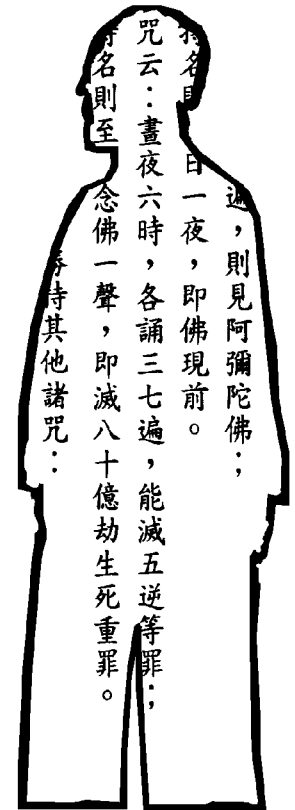 遍，則見阿彌陀佛；
持名日一夜，即佛現前。
咒云：晝夜六時，各誦三七遍，能滅五逆等罪；
持名則至念佛一聲，即滅八十億劫生死重罪。
持其他諸咒：